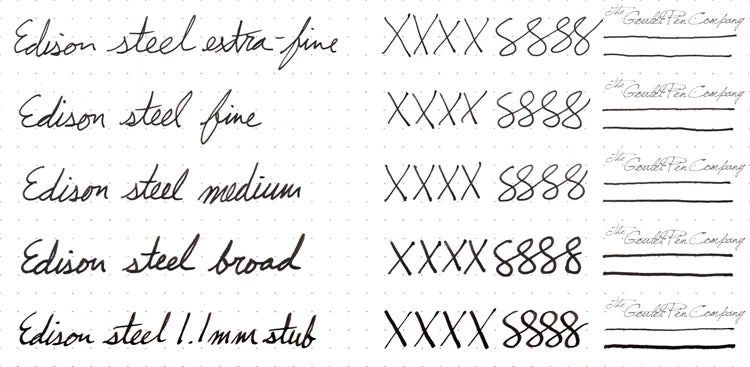 Edison steel extra-fine XXXX 8888 The Goulet Pen Company
Edison steel fine XXXX 8888 The Goulet Pen Company
Edison steel medium XXXX 8888 The Goulet Pen Company
Edison steel broad XXXX 8888 The Goulet Pen Company
Edison steel 1.1mm stub XXXX 8888 The Goulet Pen Company